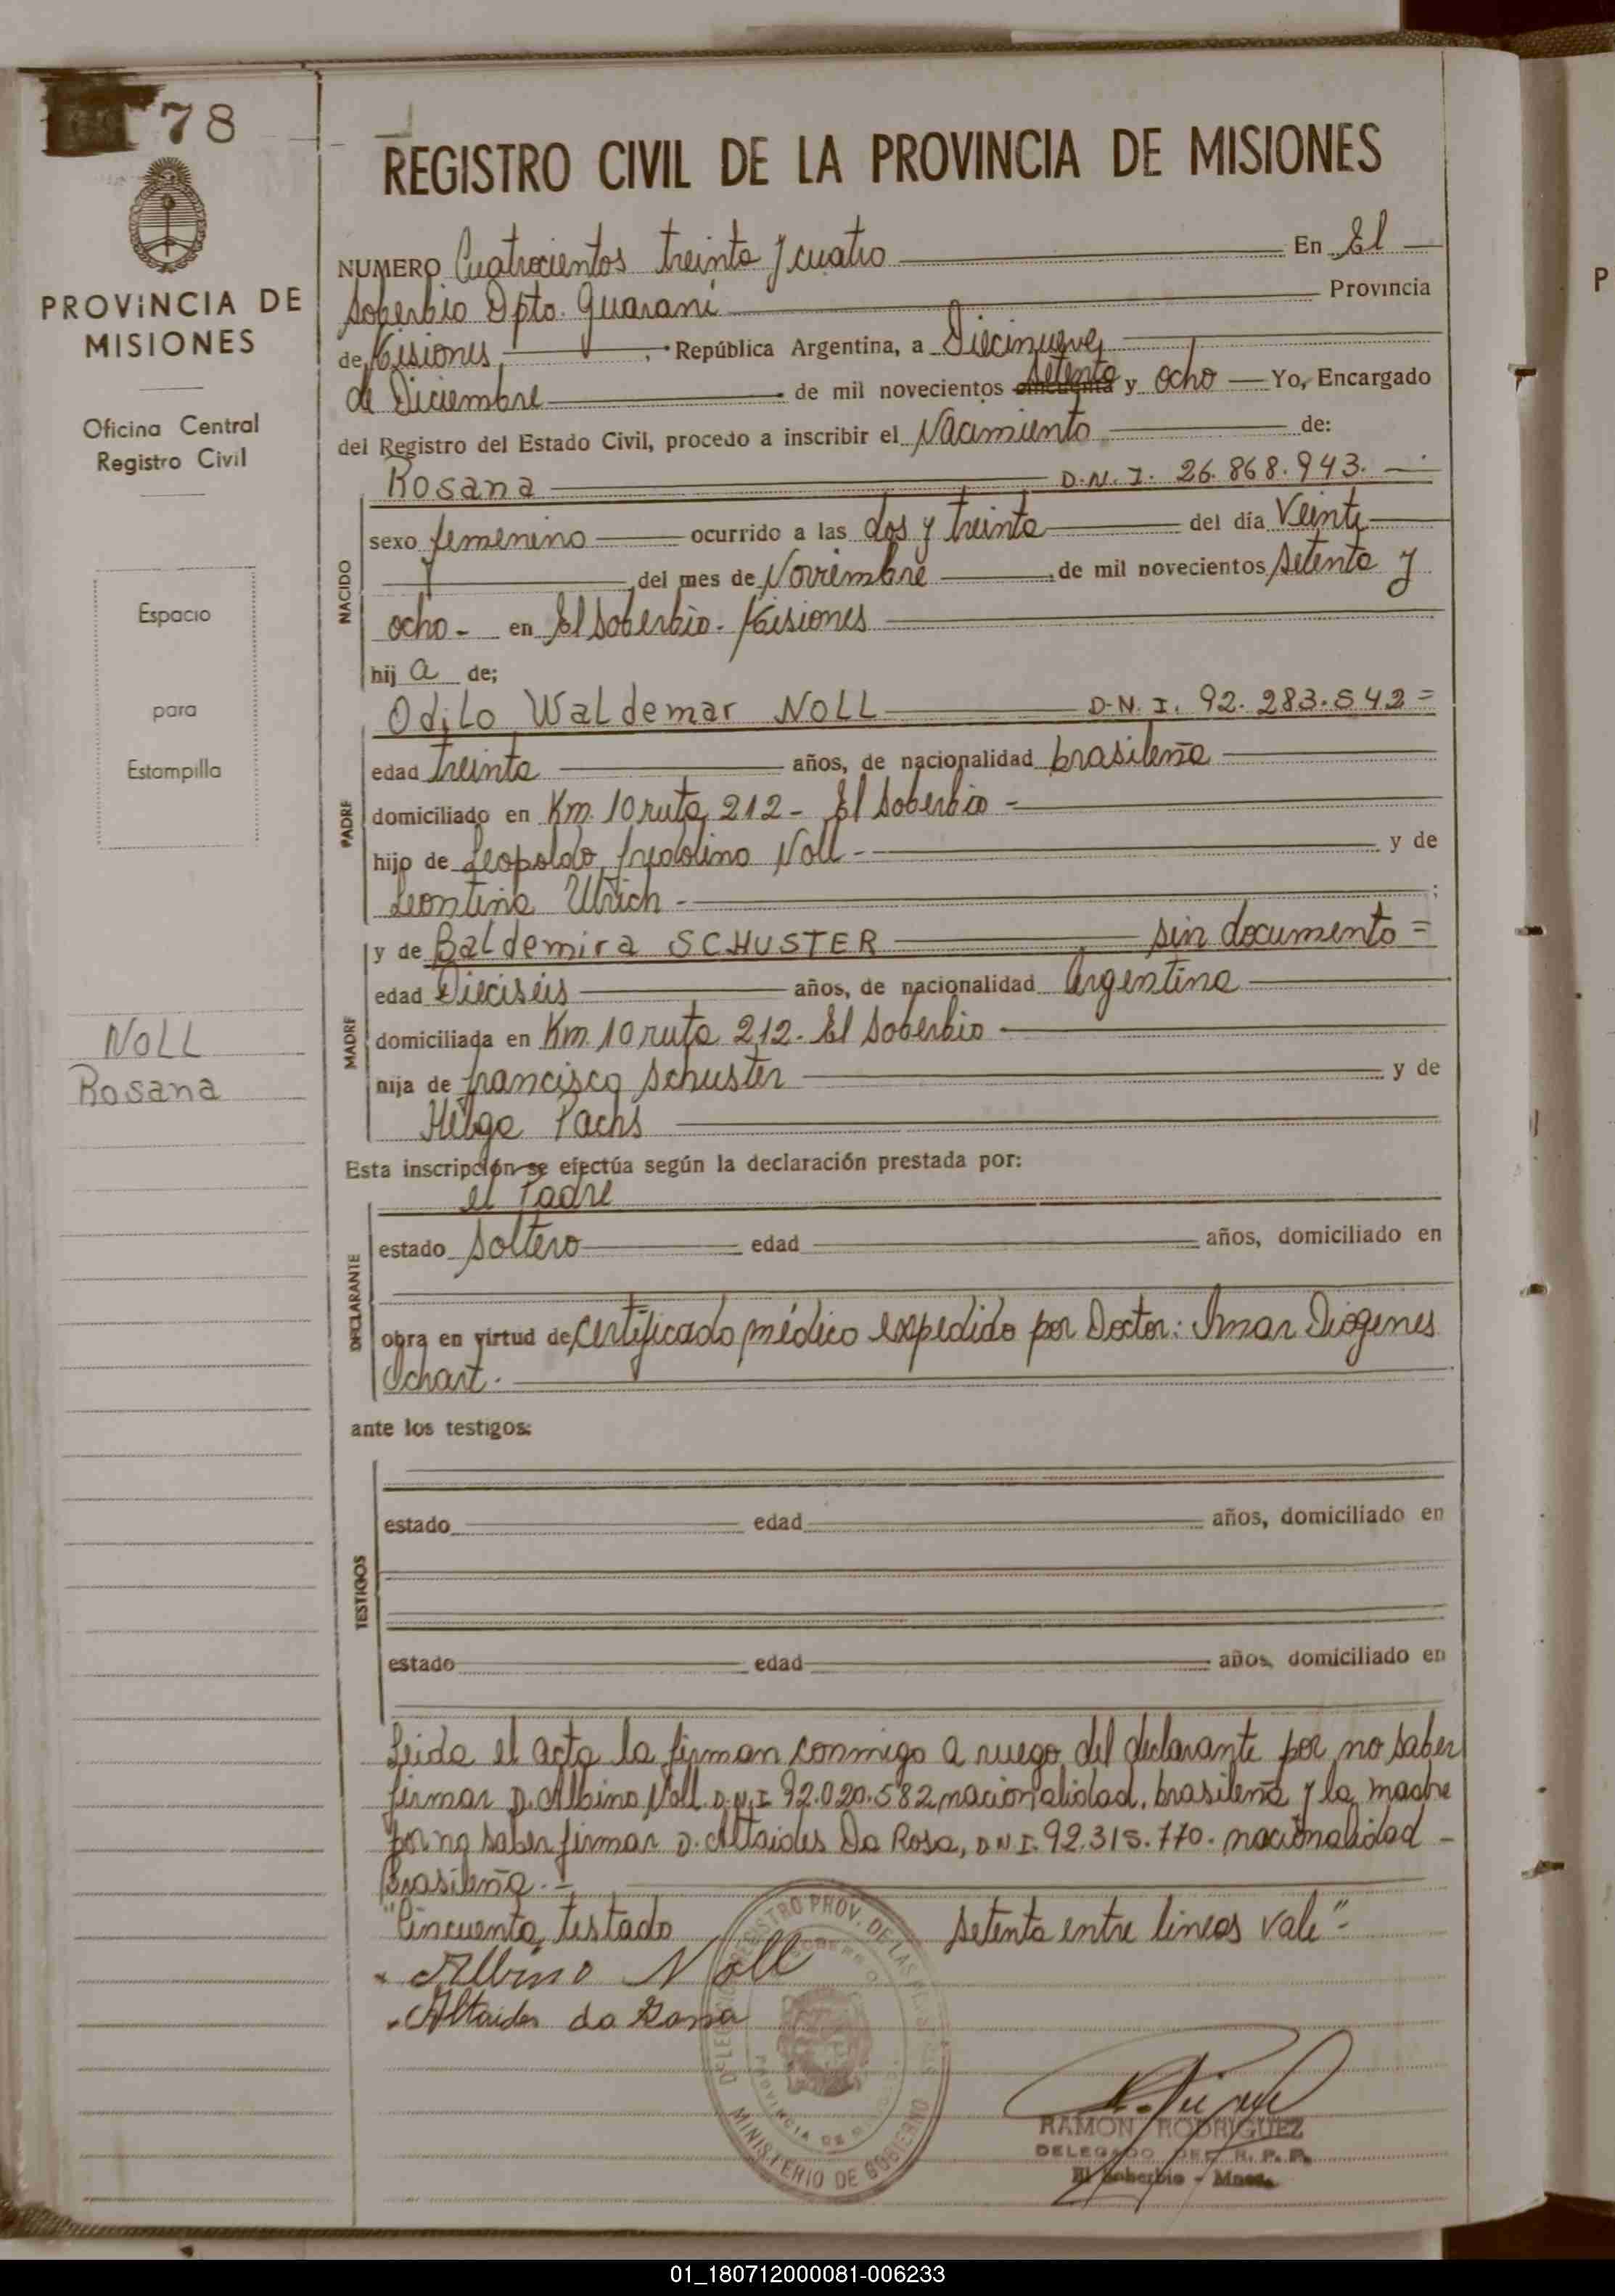 78
PROVINCIA DE
MISIONES
Oficina Central
Registro Civil
Espacio
para
Estampilla
NOLL
Rosana
REGISTRO CIVIL DE LA PROVINCIA DE MISIONES
NUMERO Cuatrocientos treinta y cuatro En El
Soberbio Dpto. Guaraní Provincia
de Misiones, República Argentina, a Diecinueve
de Diciembre de mil novecientos cincuenta setenta y ocho Yo, Encargado
del Registro del Estado Civil, procedo a inscribir el Nacimiento de:
Rosana D.N.I. 26.868.943.
NACIDO
sexo femenino ocurrido a las dos y treinta del día Veinte
del mes de Noviembre de mil novecientos setenta y
ocho - en El Soberbio - Misiones
hij a de;
Odilo Waldemar NOLL D.N.I. 92.283.542 =
PADRE
edad treinta años, de nacionalidad brasileña
domiciliado en Km. 10 ruta 212 - El Soberbio -
hijo de Leopoldo Fredolino Noll - y de
Leontina Ulrich - ;
y de Baldemira SCHUSTER sin documento =
MADRE
edad Dieciseis años, de nacionalidad Argentina
domiciliada en Km. 10 ruta 212. El Soberbio
hija de Francisco Schuster y de
Helga Pachs
Esta inscripción se efectúa según la declaración prestada por:
el Padre
DECLARANTE
estado Soltero edad años, domiciliado en
obra en virtud de Certificado médico expedido por Doctor: Diógenes
Ochart.
ante los testigos:
TESTIGOS
estado edad años, domiciliado en
estado edad años, domiciliado en
Leida el acta la firman conmigo a ruego del declarante por no saber
firmar D. Albino Noll D.N.I 92.020.582 nacionalidad brasileña y la madre
por no saber firmar D. Altaides Da Rosa, D.N.I. 92.315.770. nacionalidad -
Brasileña. -
"Cincuenta, testado setenta entre lineas vale" -
Albino Noll
Altaides da Rosa
REGISTRO PROV. DE LAS PERSONAS
MINISTERIO DE GOBIERNO
RAMON RODRIGUEZ
DELEGADO DEL R. P. P.
El Soberbio - Mnes.
P
01_180712000081-006233